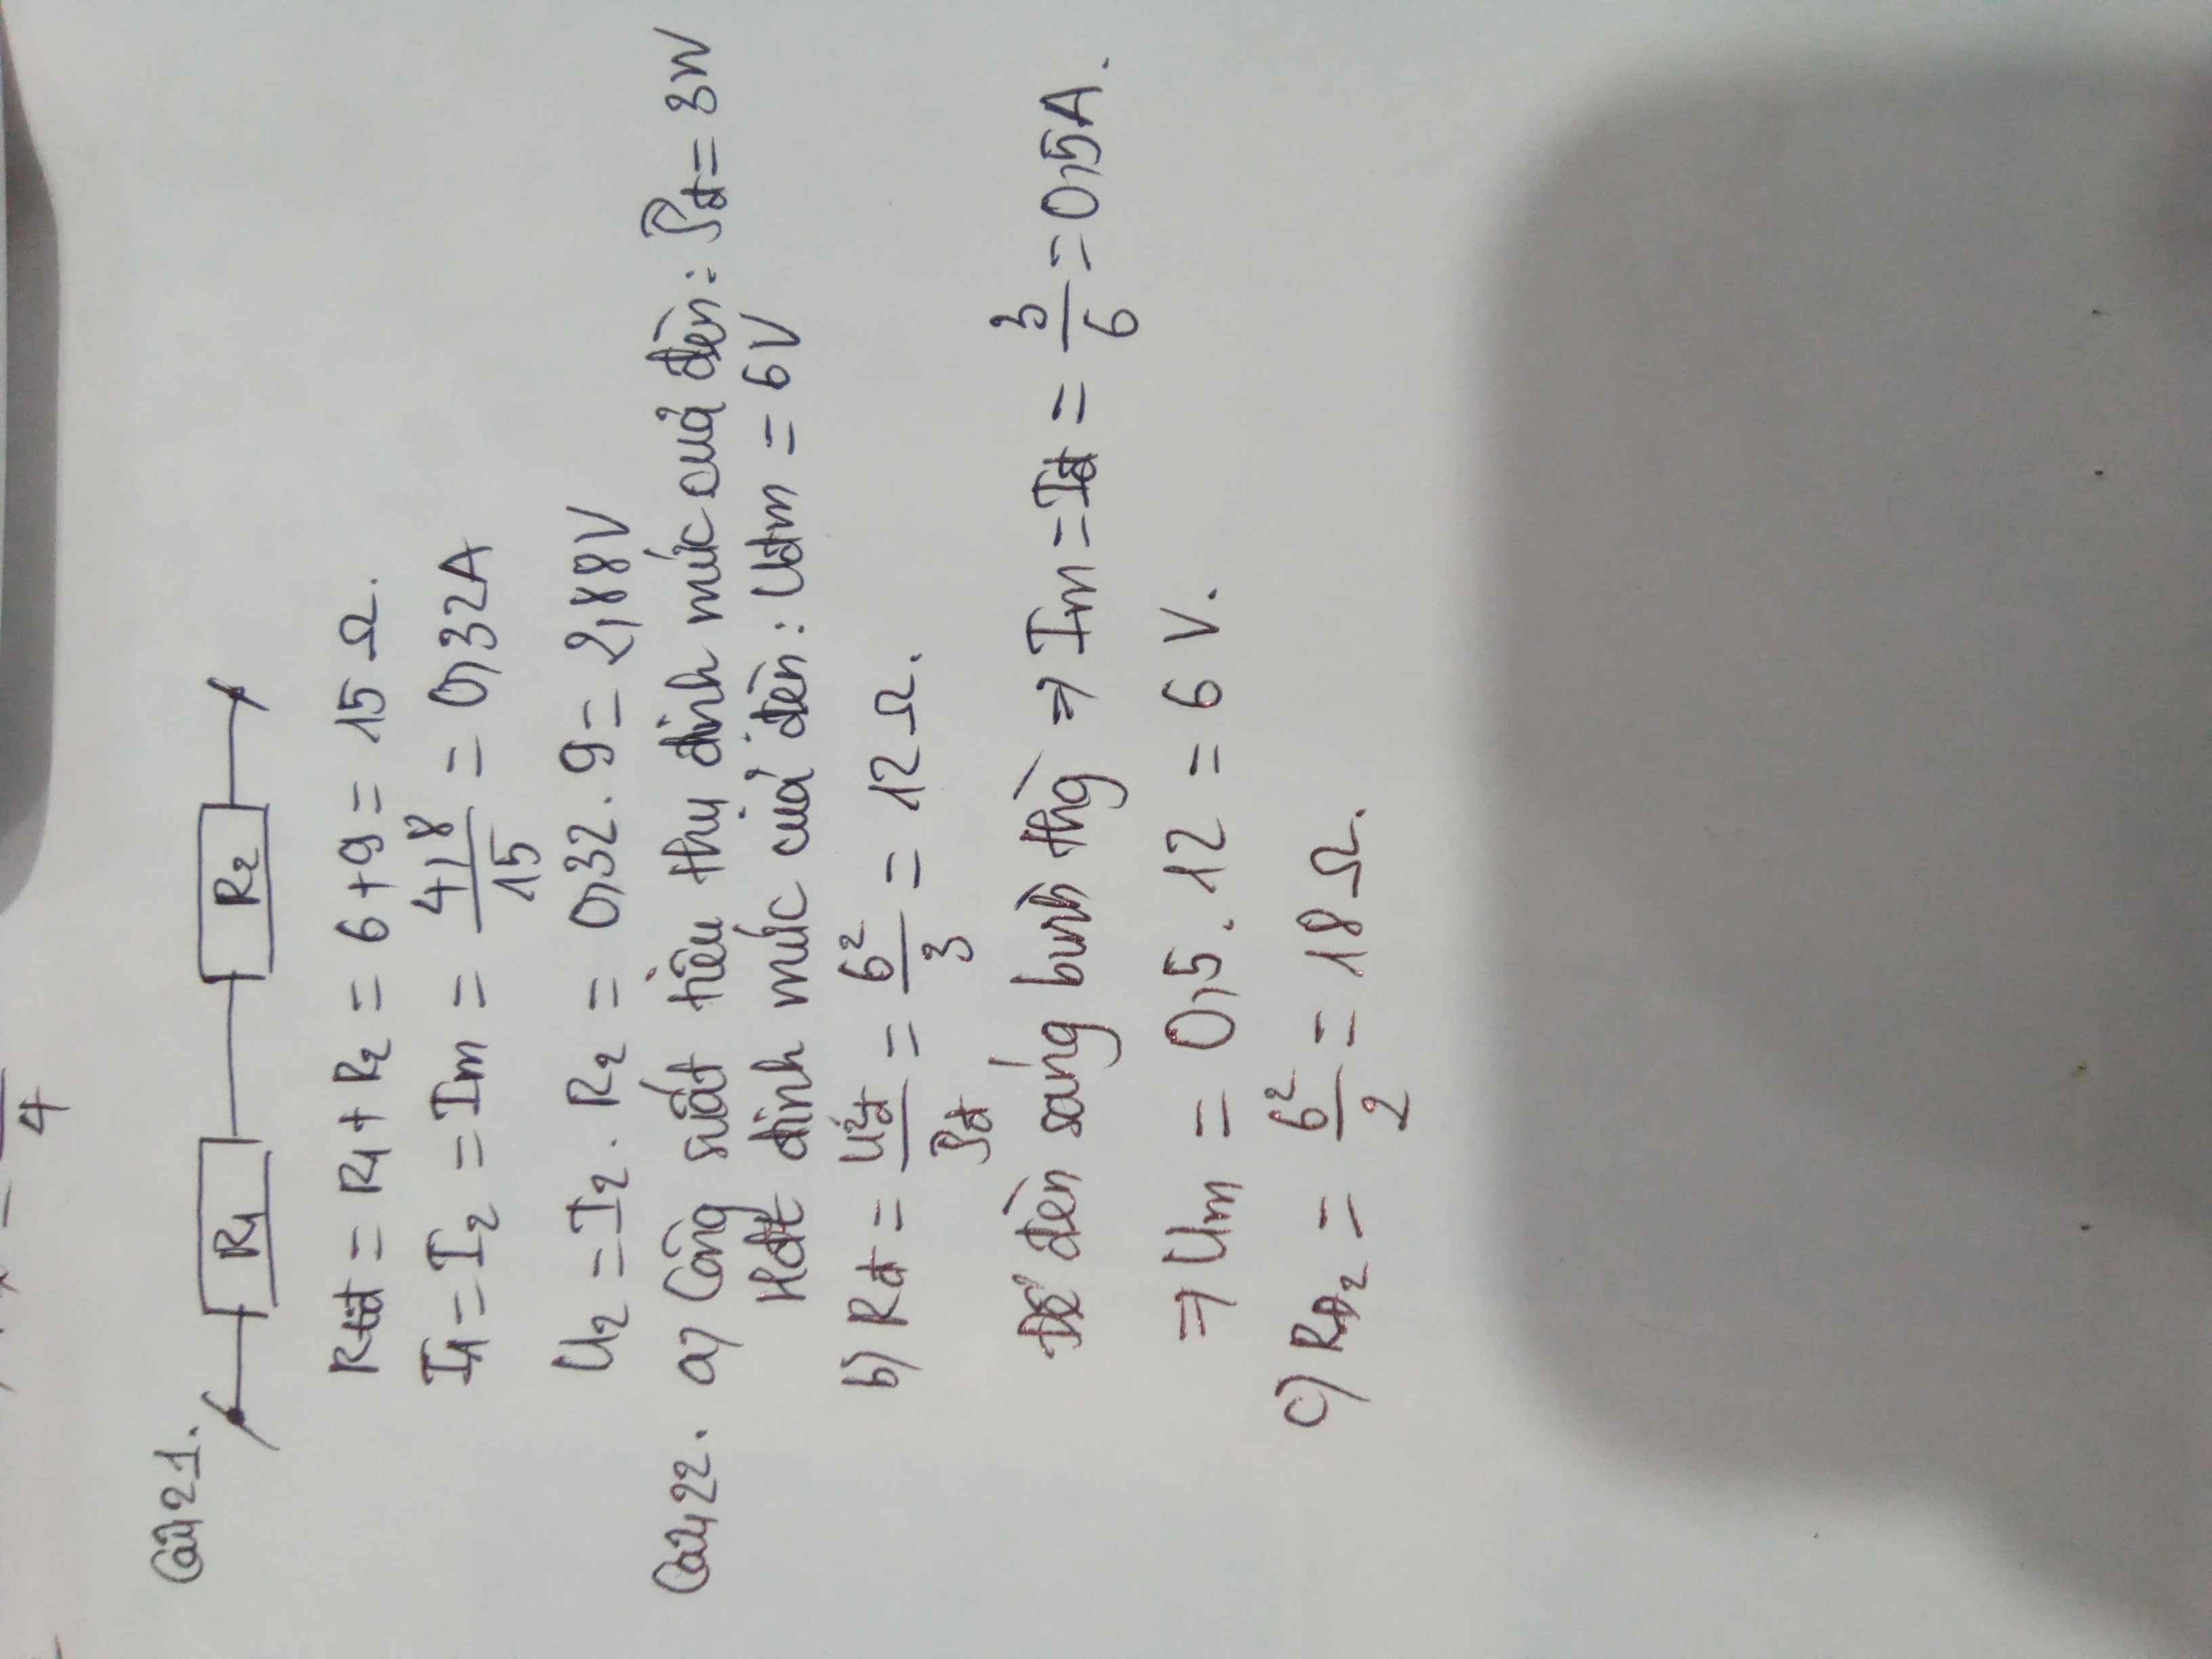 4
Câu 21.
R1 R2
Rtđ = R1 + R2 = 6 + 9 = 15 Ω.
I1 = I2 = Im = 4,8/15 = 0,32A
U2 = I2 . R2 = 0,32 . 9 = 2,88V
Câu 22. a) Công suất tiêu thụ định mức của đèn: Pđ = 3W
Hđt định mức của đèn: Uđm = 6V
b) Rđ = U²đ/Pđ = 6²/3 = 12 Ω.
Để đèn sáng bình thg ⇒ Im = Iđ = 3/6 = 0,5A.
⇒ Um = 0,5 . 12 = 6 V.
c) RĐ2 = 6²/2 = 18 Ω.